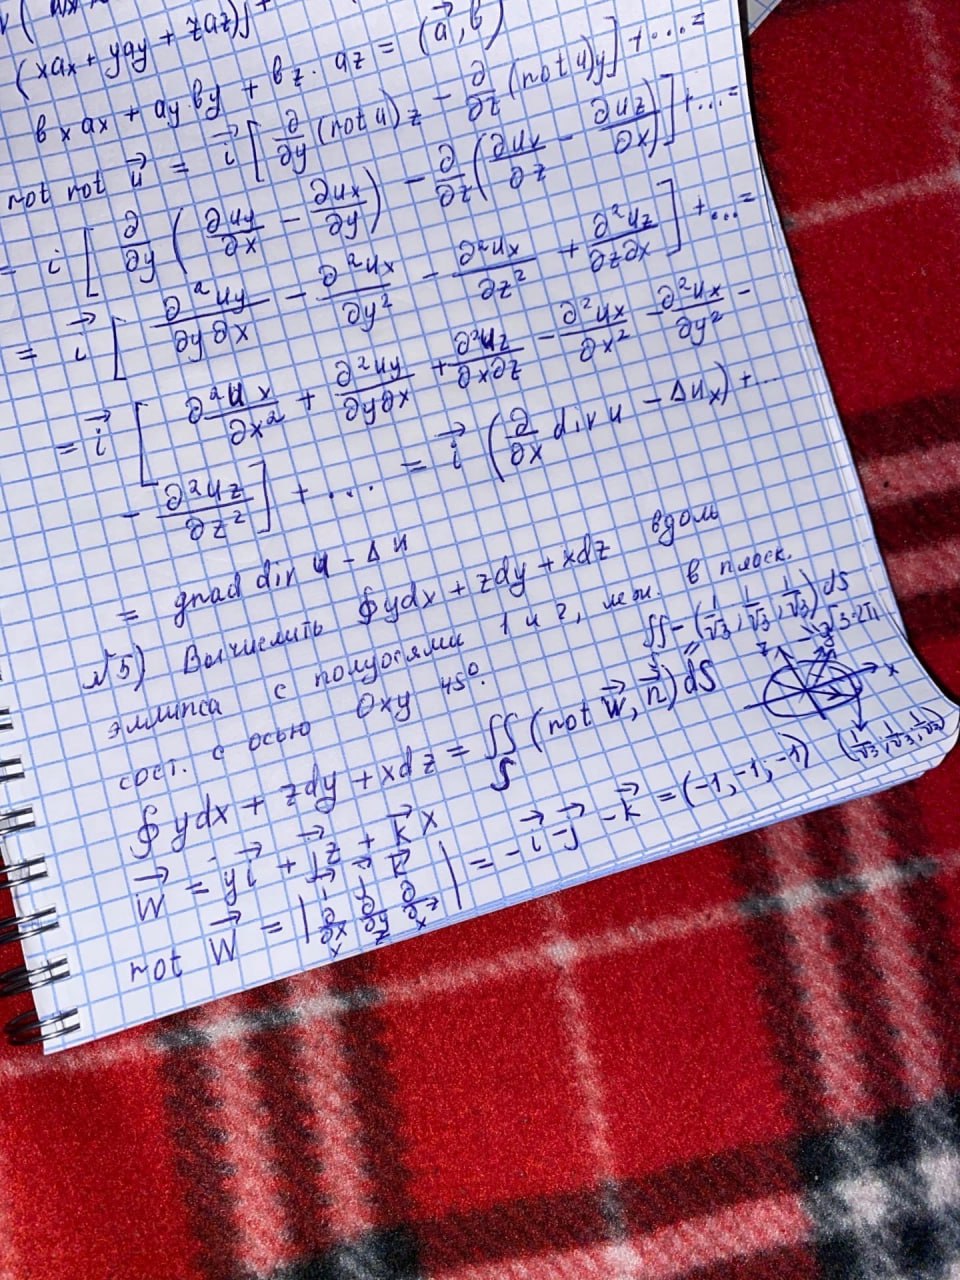 (xax + yay + zaz)
bxax + ay·by + bz·az = (a⃗, b⃗)
rot rot u⃗ = i⃗ [∂/∂y (rot u)z − ∂/∂z (rot u)y] + ... =
= i [∂/∂y (∂uy/∂x − ∂ux/∂y) − ∂/∂z (∂ux/∂z − ∂uz/∂x)] + ... =
= i⃗ [∂²uy/∂y∂x − ∂²ux/∂y² − ∂²ux/∂z² + ∂²uz/∂z∂x] + ... =
= i⃗ [∂²ux/∂x² + ∂²uy/∂y∂x + ∂²uz/∂x∂z − ∂²ux/∂x² − ∂²ux/∂y² −
− ∂²uz/∂z²] + ... = i⃗ (∂/∂x div u − Δux) + ...
= grad div u − Δu
№5) Вычислить ∮ydx + zdy + xdz вдоль
эллипса с полуосями 1 и 2, леж. в плоск.
сост. с осью Oxy 45°.
∬ − (1/√3, 1/√3, 1/√3) dS
∮ydx + zdy + xdz = ∬S (rot w⃗, n⃗) dS
z x
(1/√3, 1/√3, 1/√3)
w⃗ = yi⃗ + j⃗z + k⃗x
rot w⃗ = | i⃗ j⃗ k⃗ ∂/∂x ∂/∂y ∂/∂z | = −i⃗ −j⃗ −k⃗ = (−1, −1, −1)